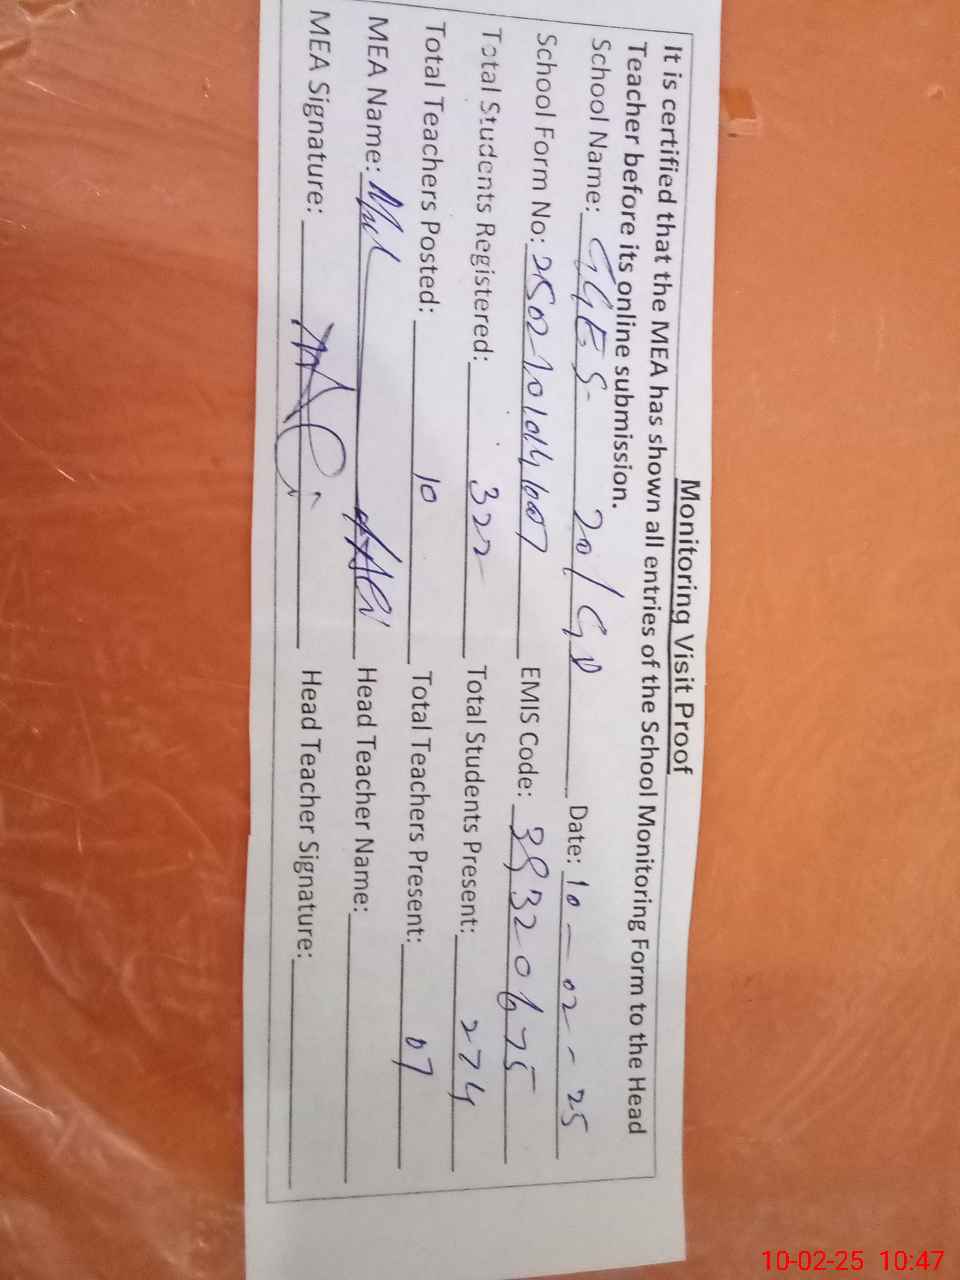 Monitoring Visit Proof
It is certified that the MEA has shown all entries of the School Monitoring Form to the Head
Teacher before its online submission.
School Name: GGES 201/GD Date: 10-02-25
School Form No: EMIS Code:
Total Students Registered: 322 Total Students Present: 274
Total Teachers Posted: 10 Total Teachers Present: 07
MEA Name: Head Teacher Name:
MEA Signature: Head Teacher Signature:
10-02-25 10:47